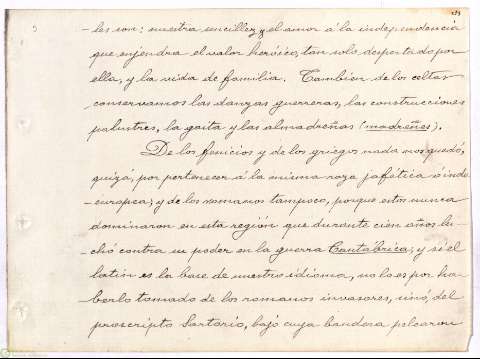 les son: nuestra sencillez y el amor á la independencia
que enjendra el valor heróico, tan solo despertado por
ella, y la vida de familia. Tambien de los celtas
conservamos las danzas guerreras, las construcciones
palustres, la gaita y las almadreñas (madreñes).
De los fenicios y de los griegos nada nos quedó,
quizá, por pertenecer á la misma raza jafética ó indo-
europea; y de los romanos tampoco, porque estos nunca
dominaron en esta región que durante cien años lu-
chó contra su poder en la guerra Cantábrica; y si el
latin es la base de nuestro idioma, no lo es por ha-
berlo tomado de los romanos invasores, sinó, del
proscripto Sartorio, bajo cuya bandera pelearon